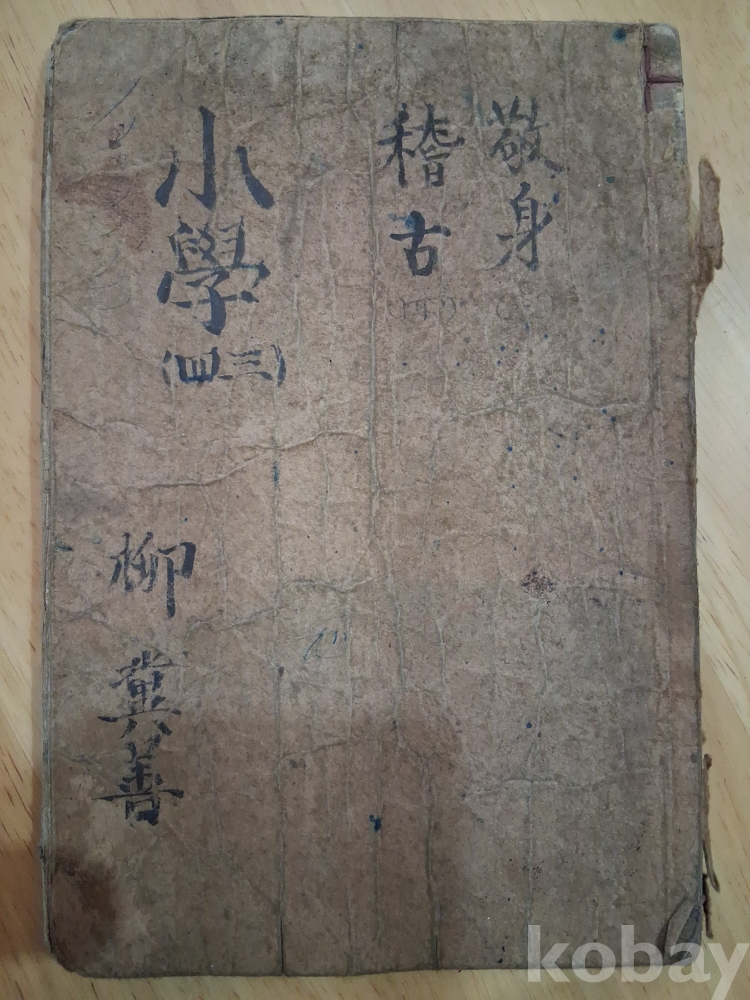 敬身
稽古
小學
(三四)
柳冀善
kobay